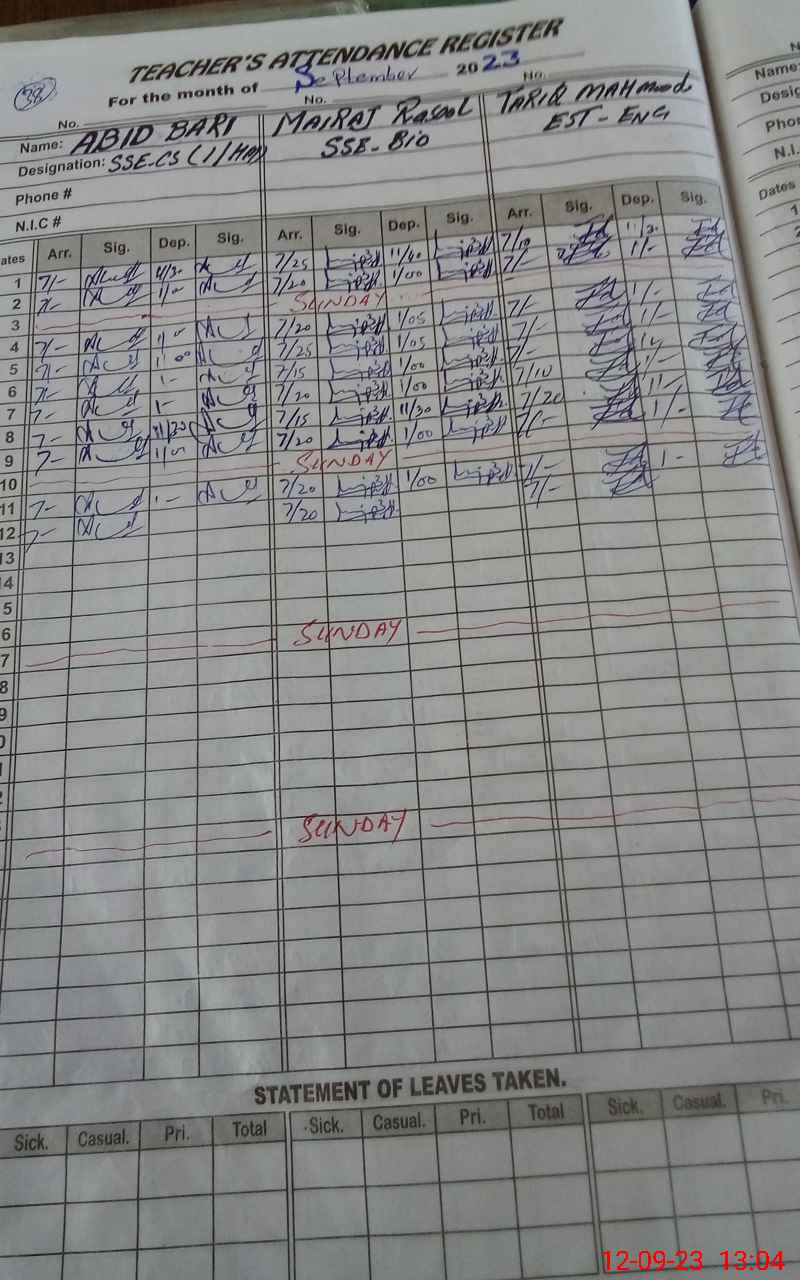 38
TEACHER'S ATTENDANCE REGISTER
For the month of September 2023
No. No. No.
Name: ABID BARI MAIRAJ Rasool TARIQ MAHmood
Designation: SSE-CS (I/Head) SSE-Bio EST-ENG
Phone #
N.I.C #
Dates Arr. Sig. Dep. Sig. Arr. Sig. Dep. Sig. Arr. Sig. Dep. Sig.
1 7/- 11/30 7/25 11/40 7/10 11/30
2 7/- 1/- 7/20 1/00 7/- 1/-
3 SUNDAY
4 7/- 1/- 7/20 1/05 7/- 1/-
5 7/- 1/00 7/25 1/05 7/- 1/-
6 7/- 1- 7/15 1/00 7/-
7 7- 1- 7/20 1/00 7/10 1/-
8 7- 11/30 7/15 11/30 7/20
9 7- 7/20 1/00 7/- 1/-
10 SUNDAY
11 7- 1- 7/20 1/00 7/- 1-
12 7- 7/20 7/-
13
14
5
6
7 SUNDAY
8
9
0
1
2
SUNDAY
STATEMENT OF LEAVES TAKEN.
Sick. Casual. Pri. Total Sick. Casual. Pri. Total Sick. Casual. Pri.
Name:
Desig
Pho
N.I.
Dates
1
12-09-23 13:04